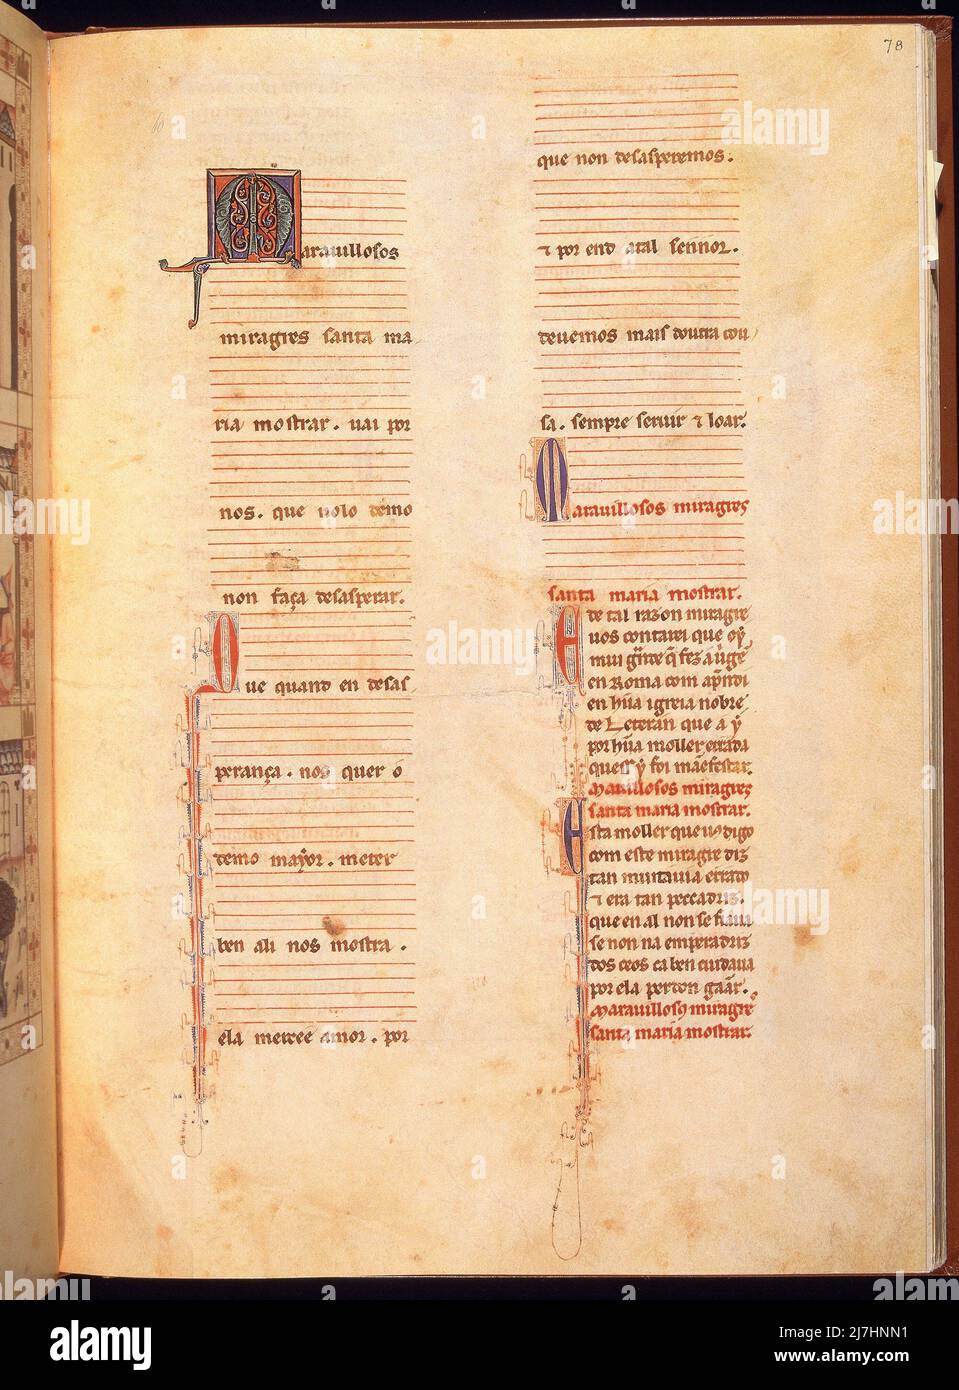 78
60
Marauillosos
miragres santa ma
ria mostrar. uai por
nos. que nolo demo
non faça desasperar.
Que quand en desas
perança. nos quer o
demo mayor. meter
ben ali nos mostra.
ela mercee amor. por
que non desasperemos.
⁊ por end atal sennor.
deuemos mais doutra cou
sa. sempre seruir ⁊ loar.
Marauillosos miragres
santa maria mostrar.
E de tal razon miragre
uos contarei que oẏ
mui grãde q̃ fez a uirgẽ
en Roma com aprendi
en hũa igreia nobre
de Leteran que a ẏ
por hũa moller errada
que ss ẏ foi mãefestar.
Marauillosos miragres
santa maria mostrar.
Esta moller que uos digo
com este miragre diz
tan muit auia errado
⁊ era tan peccadriz.
que en al non se fiaua
se non na emperadriz
dos ceos ca ben cuidaua
por ela perdon gãar.
Marauillosos miragres
santa maria mostrar.
alamy
Image ID: 2J7HNN1
www.alamy.com